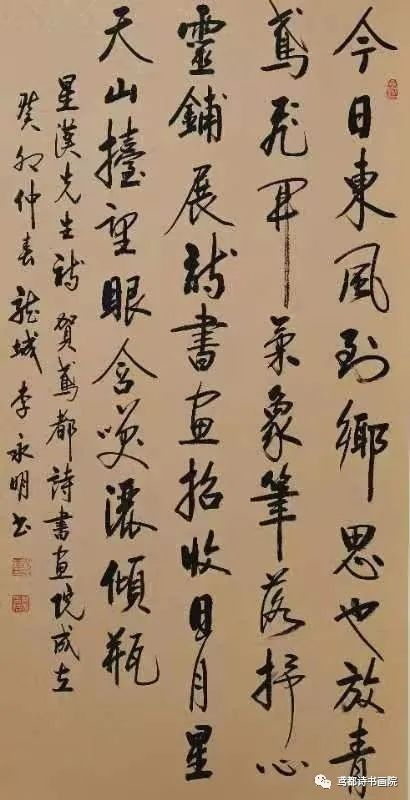 今日東風到鄉思也放青
鳶飛開氣象筆落抒心
靈鋪展詩書畫招收日月星
天山擡望眼含笑酒傾瓶
星漢先生詩賀鳶都詩書畫院成立
癸卯仲春龍城李永明書
鸢都诗书画院